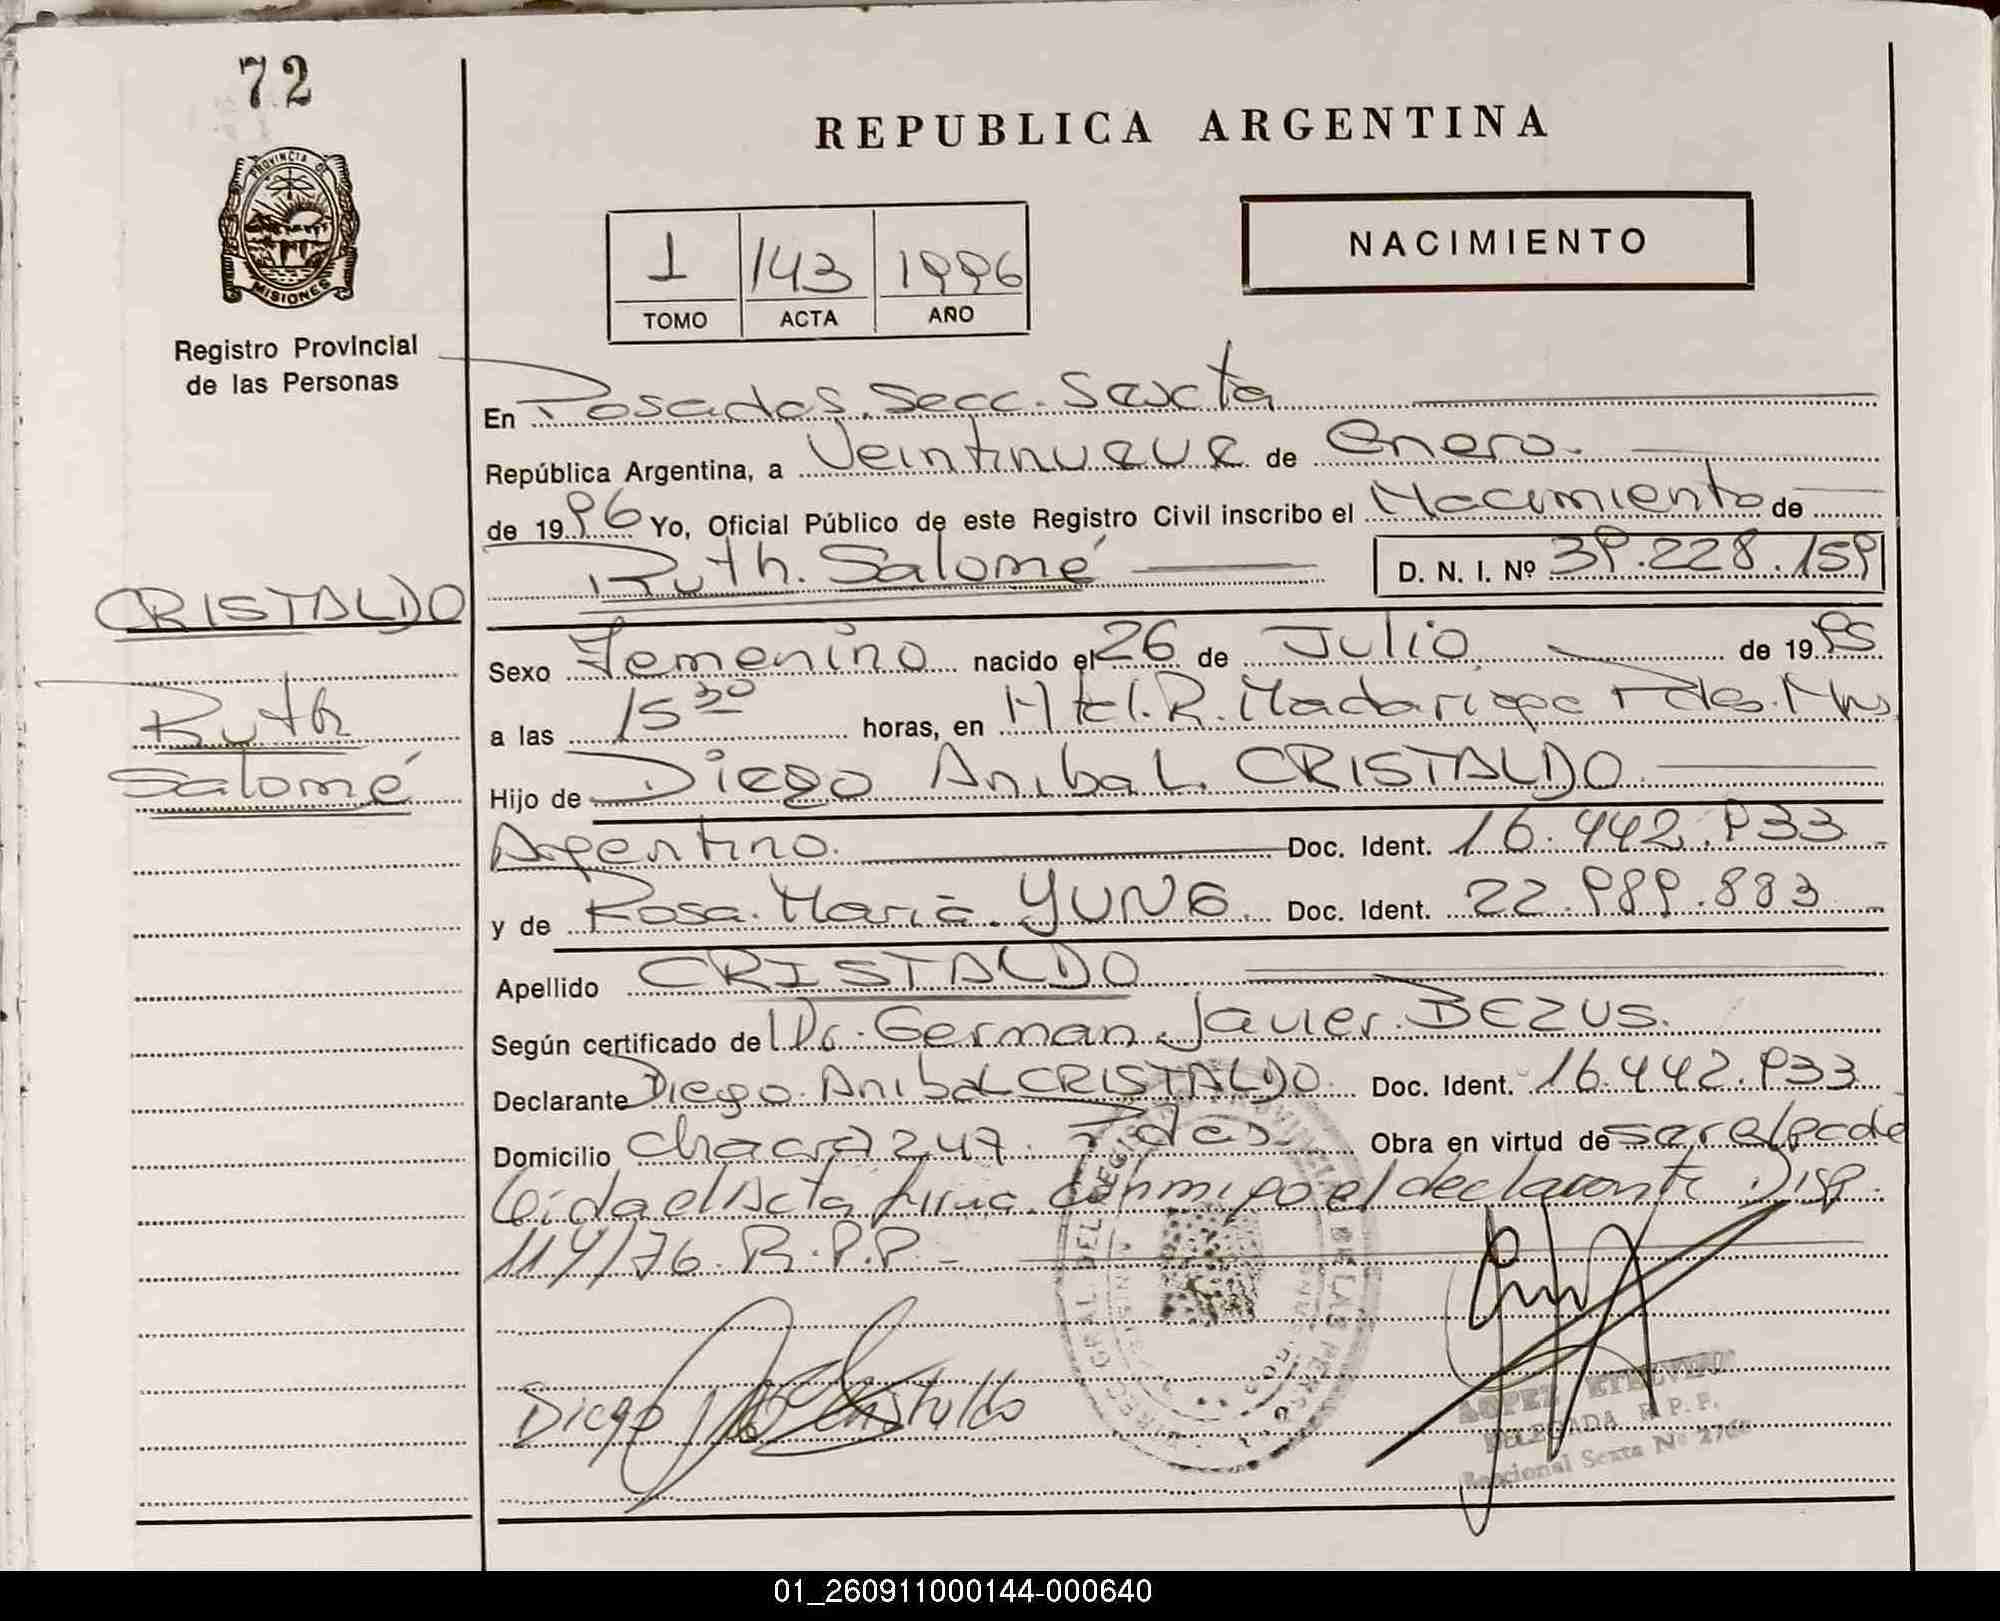 72
REPUBLICA ARGENTINA
PROVINCIA DE
MISIONES
Registro Provincial
de las Personas
1 143 1996
TOMO ACTA AÑO
NACIMIENTO
En Posadas. Secc. Sexta
República Argentina, a Veintinueve de Enero
de 1996 Yo, Oficial Público de este Registro Civil inscribo el Nacimiento de
Ruth. Salomé D. N. I. Nº 39.228.159
CRISTALDO
Ruth
Salomé
Sexo Femenino nacido el 26 de Julio de 1995
a las 15 30 horas, en Htal. R. Madariaga Pdas. Mnes
Hijo de Diego Anibal. CRISTALDO
Argentino. Doc. Ident. 16.442.933
y de Rosa. María. YUNG Doc. Ident. 22.989.883
Apellido CRISTALDO
Según certificado de Dr. German. Javier. BEZUS.
Declarante Diego. Anibal CRISTALDO. Doc. Ident. 16.442.933
Domicilio Chacra 247. Pdas. Obra en virtud de
Leída el Acta firma conmigo el declarante Disp.
119/76. R.P.P. -
Diego Cristaldo
LOPEZ
DELEGADA R. P. P.
Seccional Sexta Nº
01_260911000144-000640